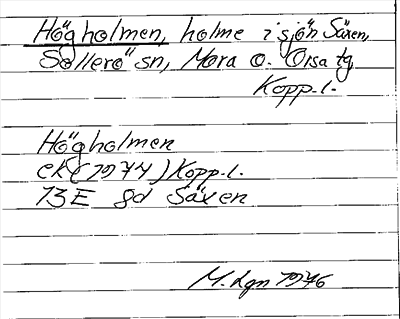 Högholmen, holme i sjön Säxen,
Sollerö sn, Mora o. Orsa tg,
Kopp.l.
Högholmen
ek (1974) Kopp.l.
13E 8d Säxen
M. Lgn 1976